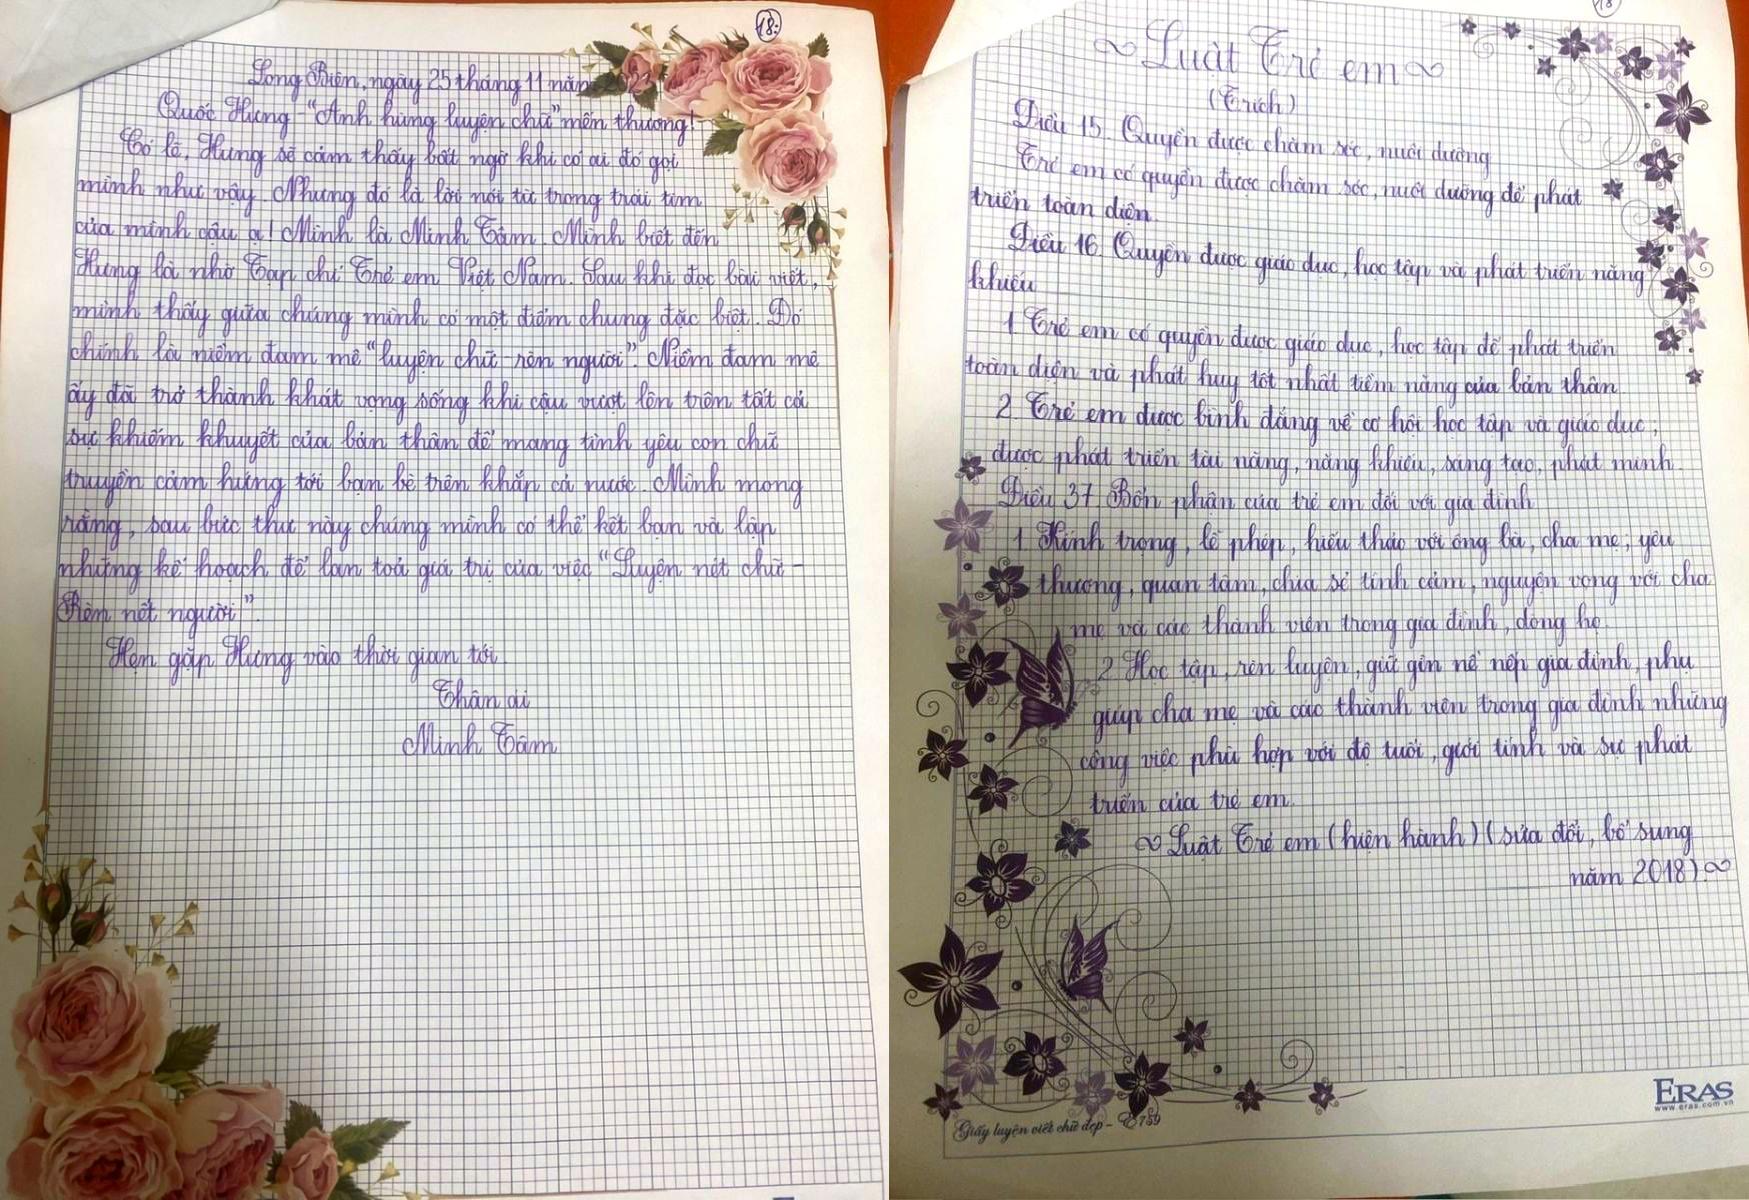 18.
Long Biên, ngày 25 tháng 11 năm
Quốc Hưng - "Anh hùng luyện chữ" mến thương!
Có lẽ, Hưng sẽ cảm thấy bất ngờ khi có ai đó gọi
mình như vậy. Nhưng đó là lời nói từ trong trái tim
của mình cậu ạ! Mình là Minh Tâm. Mình biết đến
Hưng là nhờ Tạp chí Trẻ em Việt Nam. Sau khi đọc bài viết,
mình thấy giữa chúng mình có một điểm chung đặc biệt. Đó
chính là niềm đam mê "luyện chữ - rèn người". Niềm đam mê
ấy đã trở thành khát vọng sống khi cậu vượt lên trên tất cả
sự khiếm khuyết của bản thân để mang tình yêu con chữ
truyền cảm hứng tới bạn bè trên khắp cả nước. Mình mong
rằng, sau bức thư này chúng mình có thể kết bạn và lập
những kế hoạch để lan toả giá trị của việc "Luyện nét chữ -
Rèn nết người".
Hẹn gặp Hưng vào thời gian tới
Thân ái
Minh Tâm
18
~ Luật Trẻ em ~
(Trích)
Điều 15. Quyền được chăm sóc, nuôi dưỡng
Trẻ em có quyền được chăm sóc, nuôi dưỡng để phát
triển toàn diện
Điều 16. Quyền được giáo dục, học tập và phát triển năng
khiếu
1 Trẻ em có quyền được giáo dục, học tập để phát triển
toàn diện và phát huy tốt nhất tiềm năng của bản thân
2. Trẻ em được bình đẳng về cơ hội học tập và giáo dục;
được phát triển tài năng, năng khiếu, sáng tạo, phát minh
Điều 37. Bổn phận của trẻ em đối với gia đình
1 Kính trọng, lễ phép, hiếu thảo với ông bà, cha mẹ; yêu
thương, quan tâm, chia sẻ tình cảm, nguyện vọng với cha
mẹ và các thành viên trong gia đình, dòng họ.
2 Học tập, rèn luyện, giữ gìn nề nếp gia đình, phụ
giúp cha mẹ và các thành viên trong gia đình những
công việc phù hợp với độ tuổi, giới tính và sự phát
triển của trẻ em.
~ Luật Trẻ em (hiện hành) (sửa đổi, bổ sung
năm 2018) ~
ERAS
www.eras.com.vn
Giấy luyện viết chữ đẹp - E 159